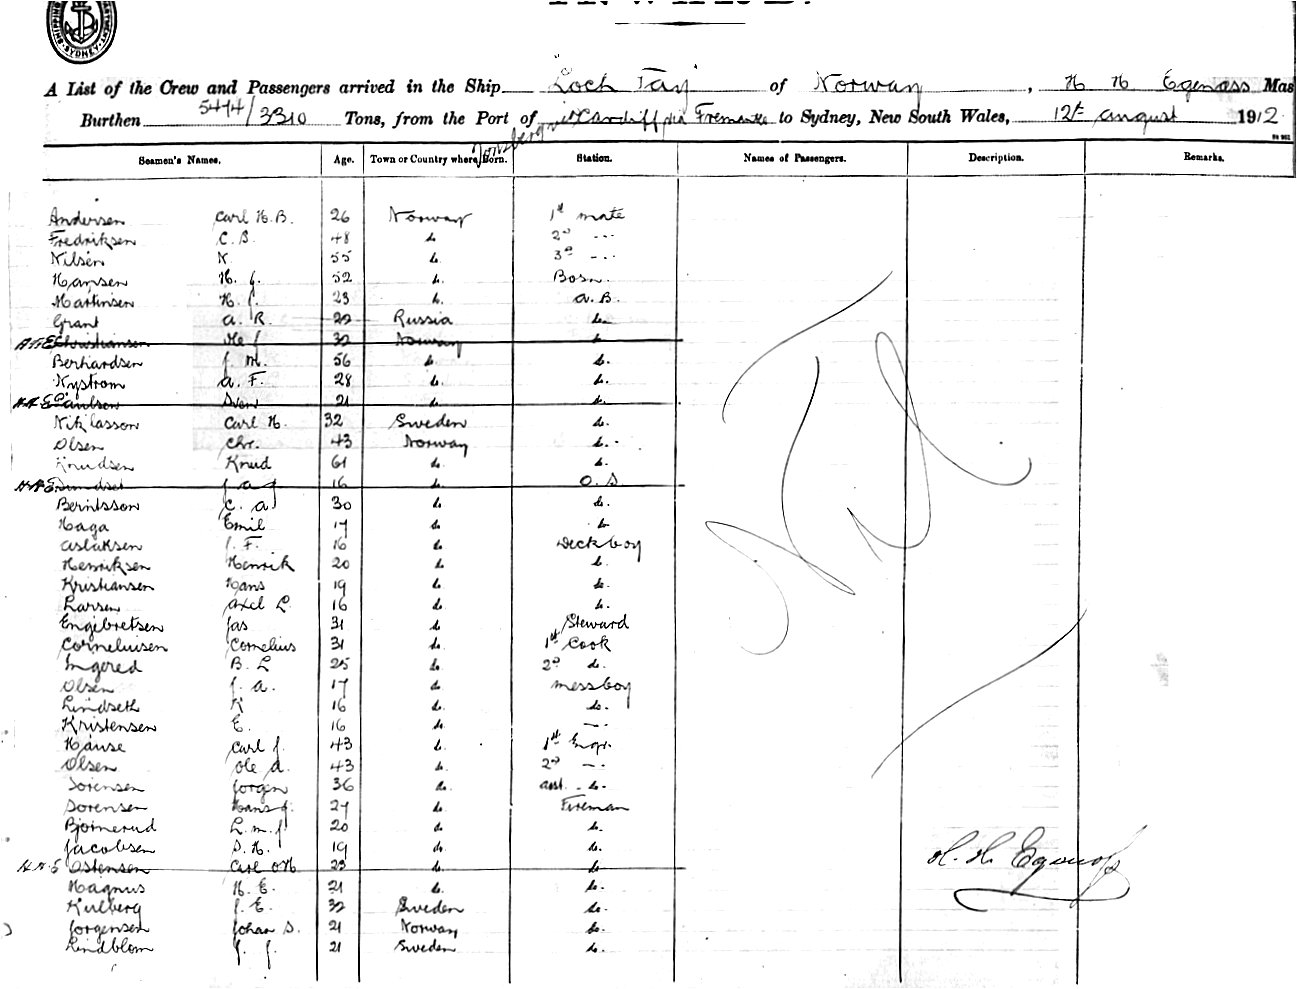 SHIPPING DEPARTMENT SYDNEY
A List of the Crew and Passengers arrived in the Ship Loch Tay of Norway, H H Egenæss Mas
Burthen 5474/3310 Tons, from the Port of Tonsberg Cardiff via Fremantle to Sydney, New South Wales, 12th august 1912
Seamen's Names. Age. Town or Country where Born. Station. Names of Passengers. Description. Remarks.
Andersen Carl H.B. 26 Norway 1st mate
Fredriksen C.B. 48 do 2nd ---
Nilsen N 55 do. 3rd ---
Hansen H. J. 52 do. Bosn.
Martinsen H. J. 23 do. a.B.
Grant a. R. 22 Russia do.
Christiansen J 32 Norway do
Berhardsen J M. 56 do do.
Nystrom a. F. 28 do. do.
H.H.E Paulsen Sven 21 do do.
Niklasson Carl H. 32 Sweden do.
Olsen Chr. 43 Norway do.
Knudsen Knud 61 do do.
H.H.E J a J 16 do O.S
Berntsson C. a 30 do do.
Haga Emil 17 do do
aslaksen J. F. 16 do Deckboy
Henriksen Henrik 20 do do.
Kristiansen Hans 19 do do.
Larsen axel L. 16 do. do.
Engebretsen Jas 31 do. Steward
Corneliusen Cornelius 31 do. 1st Cook
Ingered B. L 25 do 2nd do.
Olsen J. a. 17 do messboy
Lindseth K 16 do do.
Kristensen E. 16 do —
Hause Carl J. 43 do. 1st Engr.
Olsen Ole a. 43 do. 2nd —
Sorensen Jorgen 36 do. asst. do.
Sorensen Hans J. 27 do Fireman
Bjornerud L.m.J 20 do do.
Jacobsen S.H. 19 do do.
H.H.E Ostensen Carl OH 23 do do.
Magnus H. E. 21 do. do.
Kulberg J. E. 32 Sweden do.
Jorgensen Johan S. 21 Norway do.
Lindblom J. J. 21 Sweden do.
Nil
H. H. Egenæss